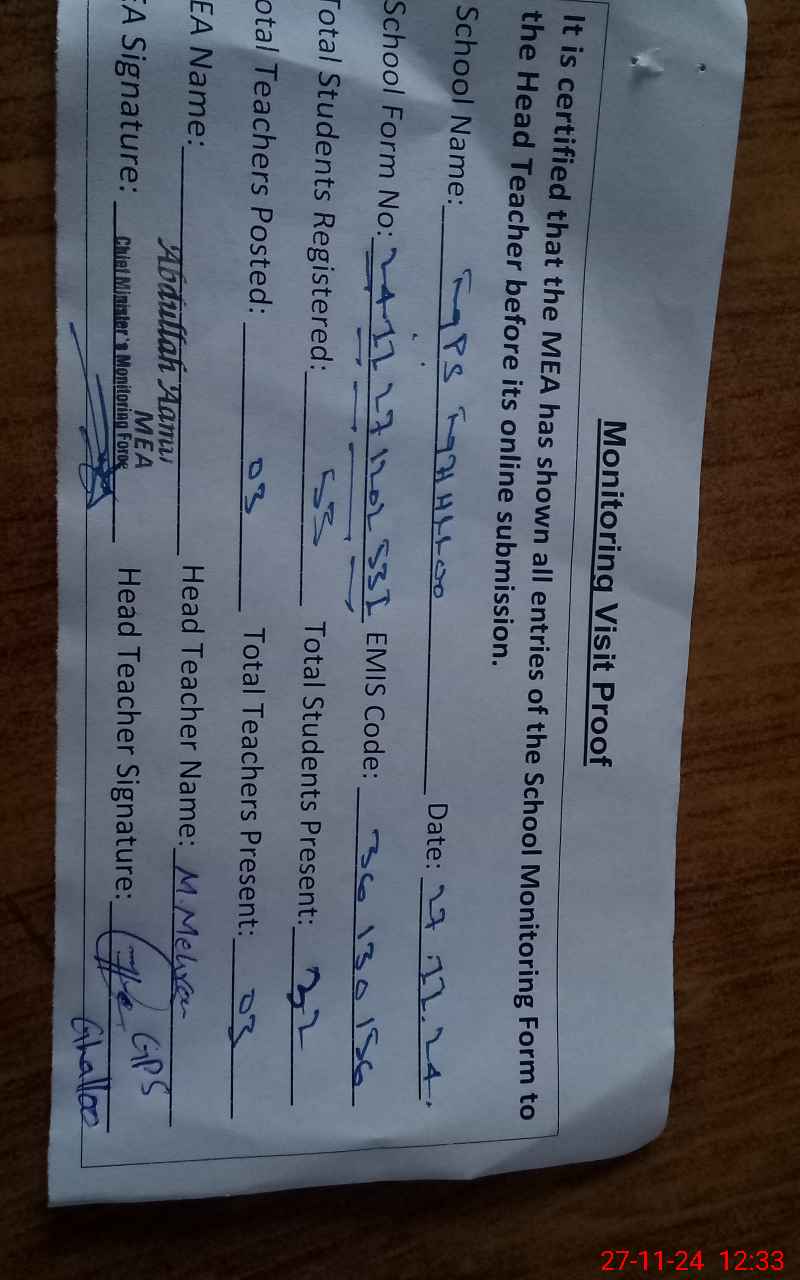 Monitoring Visit Proof
It is certified that the MEA has shown all entries of the School Monitoring Form to
the Head Teacher before its online submission.
School Name: GPS GHALLOO Date: 27.11.24.
School Form No: EMIS Code: 36130156
Total Students Registered: 53 Total Students Present:
otal Teachers Posted: 03 Total Teachers Present: 03
EA Name: Abdullah Aamir Head Teacher Name: M. Mehran
MEA
EA Signature: Chief Minister's Monitoring Force Head Teacher Signature: GPS
Ghalloo
27-11-24 12:33